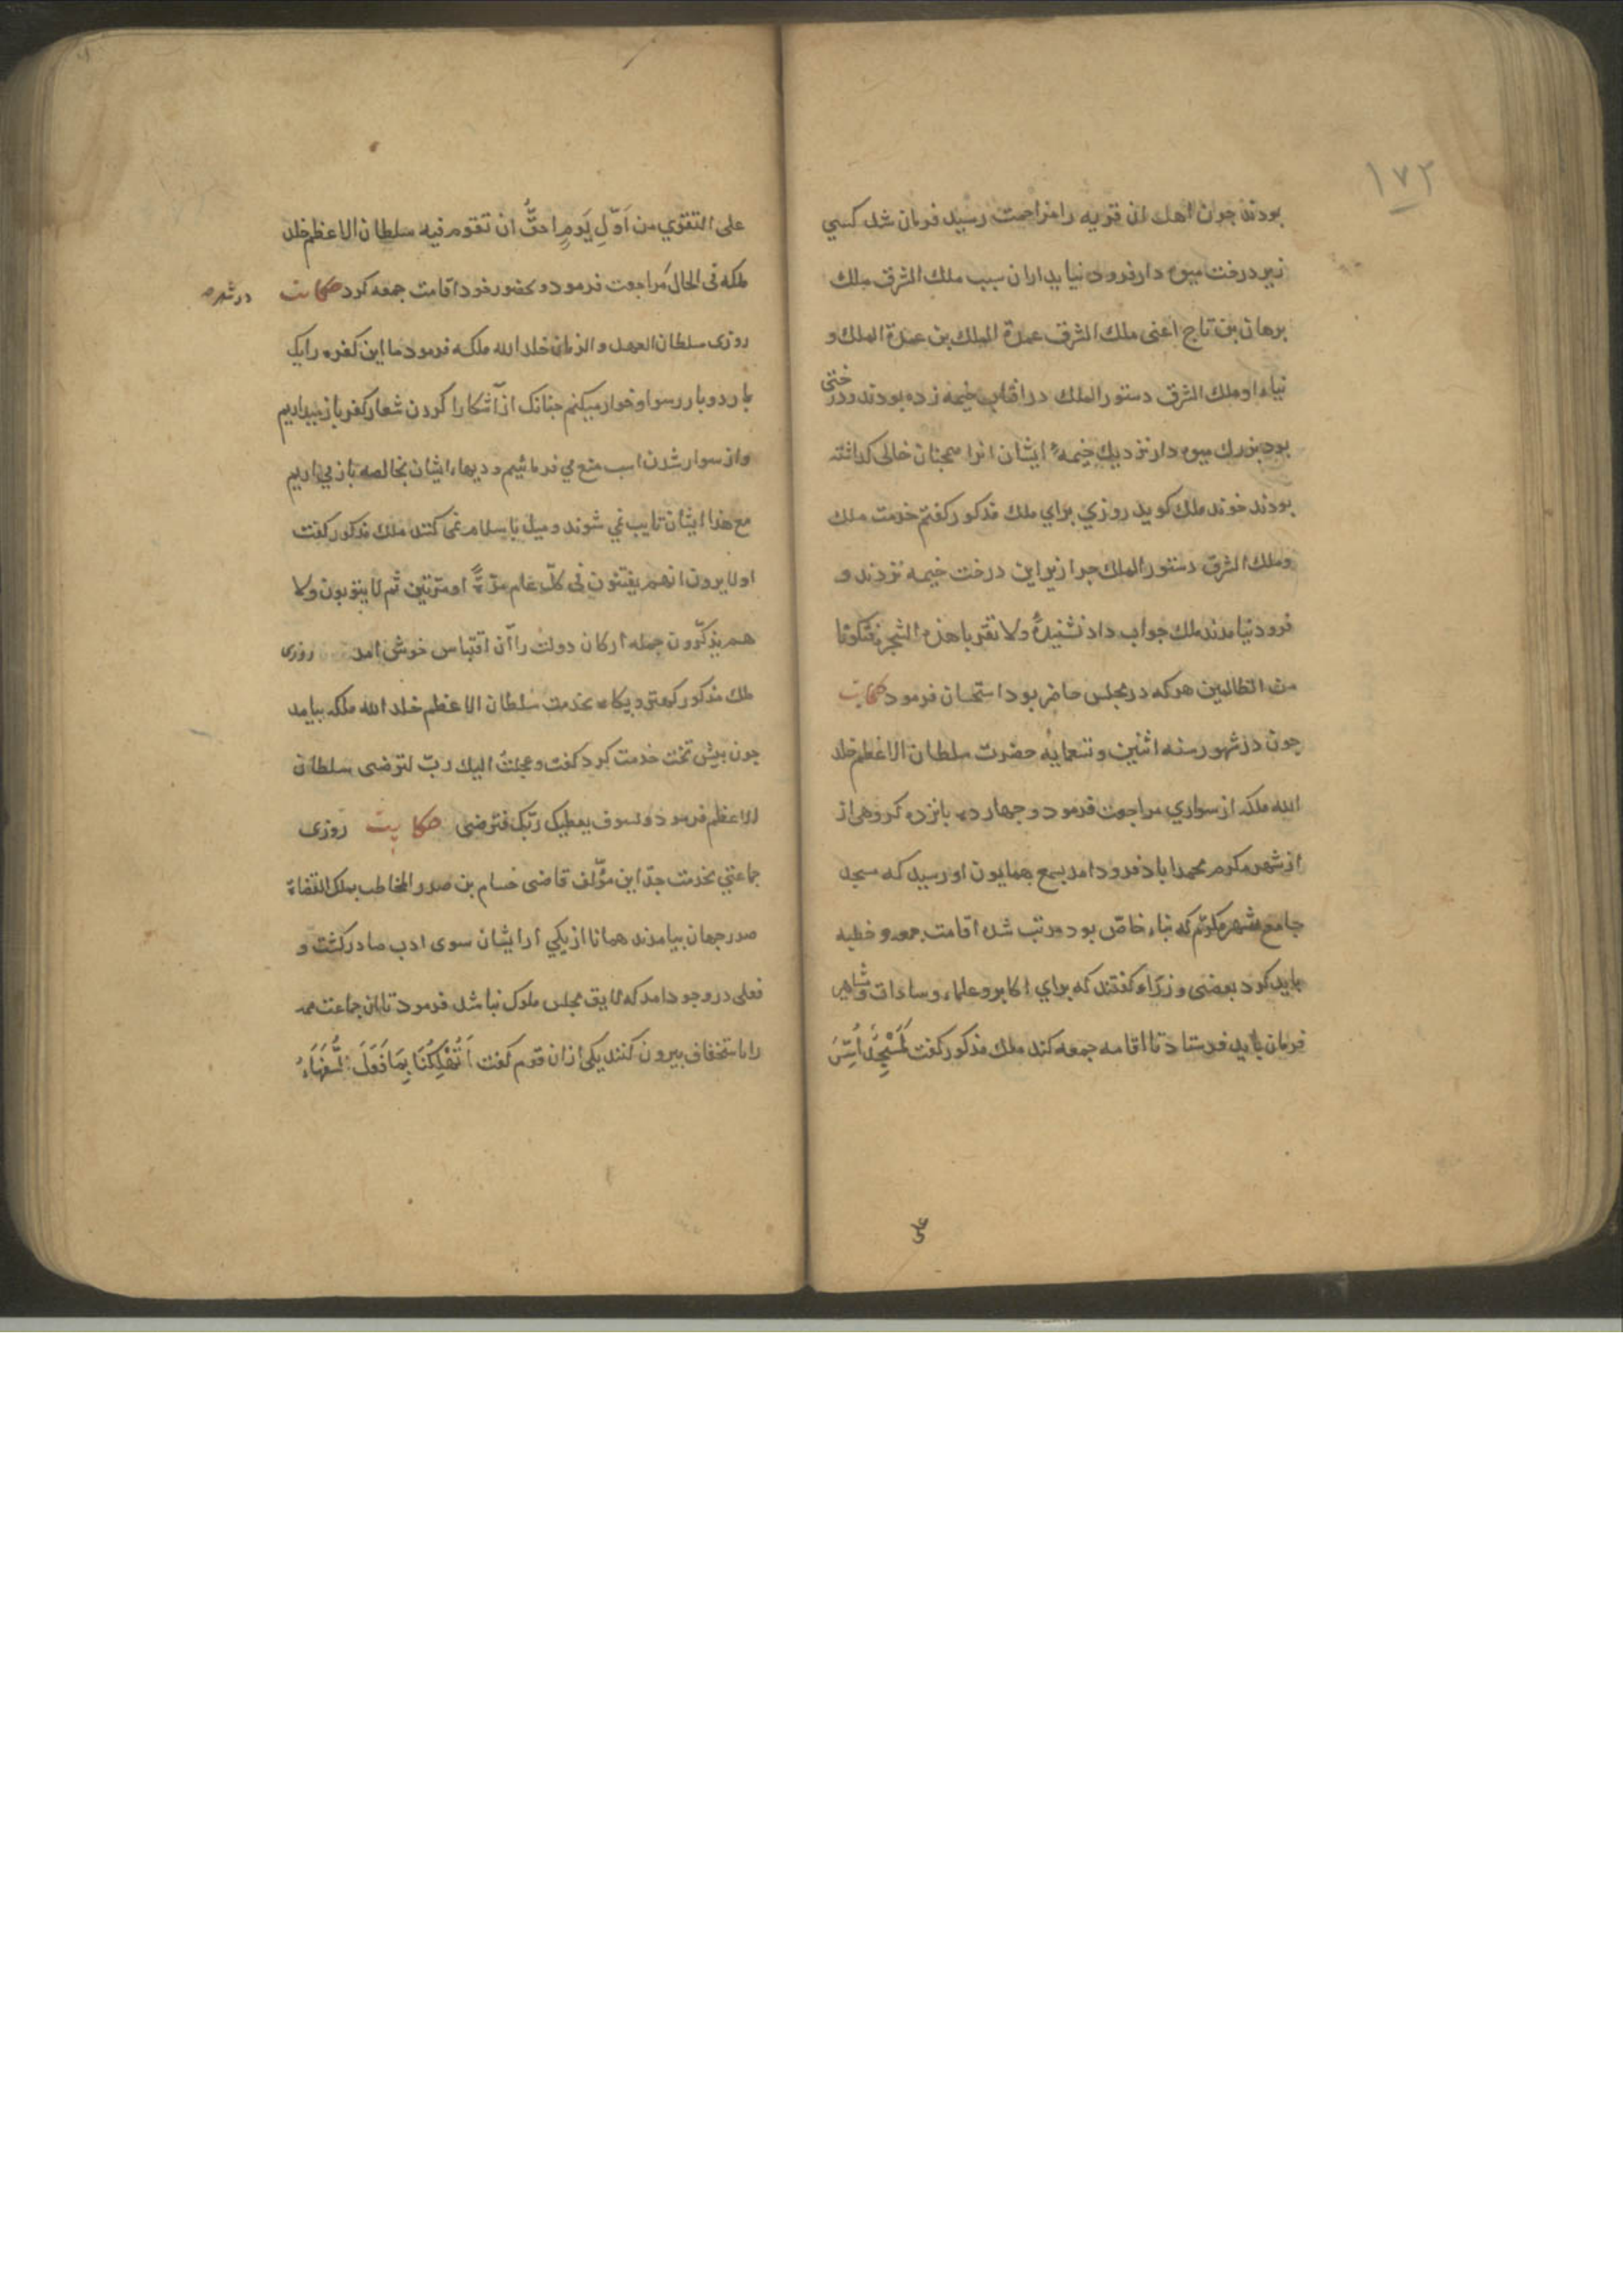 ۱۷۲
بودند جون اهل ان قریه را مزاحمت رسید فرمان شد کسي
زیر درخت میوه دار فرود نیاید اران سبب ملك الشرق ملك
برهان بن تاج اعنی ملك الشرق عمدة الملك بن عمدة الملك و
نیاء او ملك الشرق دستور الملك در افتاب خیمه زده بودند و درختی
بود بزرك میوه دار نزدیك خیمهٔ ایشان انرا همجنان خالی کذاشته
بودند خوند ملك کوید روزي براي ملك مذکور کفتم خدمت ملك
و ملك الشرق دستور الملك جرا زیر این درخت خیمه نزدند و
فرود نیامدند ملك جواب داد نشنیدهٔ ولا تقربا هذه الشجرة فتکونا
من الظالمین هرکه در مجلس حاضر بود استحسان فرمود حکایت
جون در شهور سنه اثنین و تسعمایه حضرت سلطان الاعظم خلد
الله ملکه از سواري مراجعت فرمود و جهارده بانزده کروهی از
از شهر مکرم محمداباد فرود امد بسمع همایون او رسید که مسجد
جامع شهر مکرم که بناء خاص بود مرتب شد اقامت جمعه و خطبه
باید کرد بعضی وزراء کفتند که براي اکابر و علماء و سادات و مشاهیر
فرمان باید فرستاد تا اقامه جمعه کند ملك مذکور کفت لَمَسْجِدٌ اُسِّسَ
علی التقوي من اَوّلِ یَومٍ احقُّ ان تقوم فیه سلطان الاعظم خلد
ملکه فی الحال مراجعت فرمود و بحضور خود اقامت جمعه کرد حکایت
روزی سلطان العهد و الزمان خلد الله ملکه فرمود ما این کفره را یک
بار دو بار رسوا و خوار میکنم جنانک از آشکارا کردن شعار کفر باز میداریم
و از سوار شدن اسب منع مي فرمائیم و دیهاء ایشان بخالصه باز مي اریم
مع هذا ایشان تایب نمي شوند و میل باسلام نمی کنند ملك مذکور کفت
اولا یرون انهم یفتنون في کلّ عام مرّةً او مرّتین ثم لا یتوبون ولا
هم یذکّرون جمله ارکان دولت را آن اقتباس خوش امد روزی
ملك مذکور بخدمت سلطان الاعظم خلد الله ملکه بیامد
جون بیش تخت خدمت کرد کفت و عجلتُ الیك ربّ لترضی سلطان
الاعظم فرمود و لسوف یعطیک ربّک فترضی حکایت روزی
جماعتي بخدمت جدّ این مؤلف قاضی حسام بن صدر المخاطب بملک القضاة
صدر جهان بیامدند همانا از یکي از ایشان سوی ادب صادر کشت و
فعلی در وجود امد که لایق مجلس ملوک نباشد فرمود تا ان جماعت همه
را باستخفاف بیرون کنند یکی ازان قوم کفت اَتُهْلِکُنَا بِمَا فَعَلَ السُّفَهَاءُ